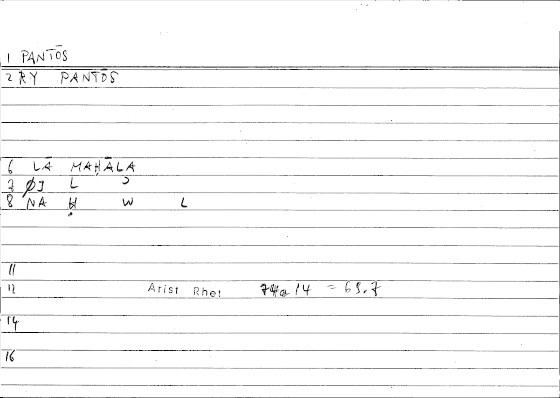 1 PANTŌS
2 RY PANTŌS
6 LĀ MAḤĀLA
7 ØJ L Ɔ
8 NA Ḥ W L
11
12 Arist Rhet 74a 14 = 69.7
14
16